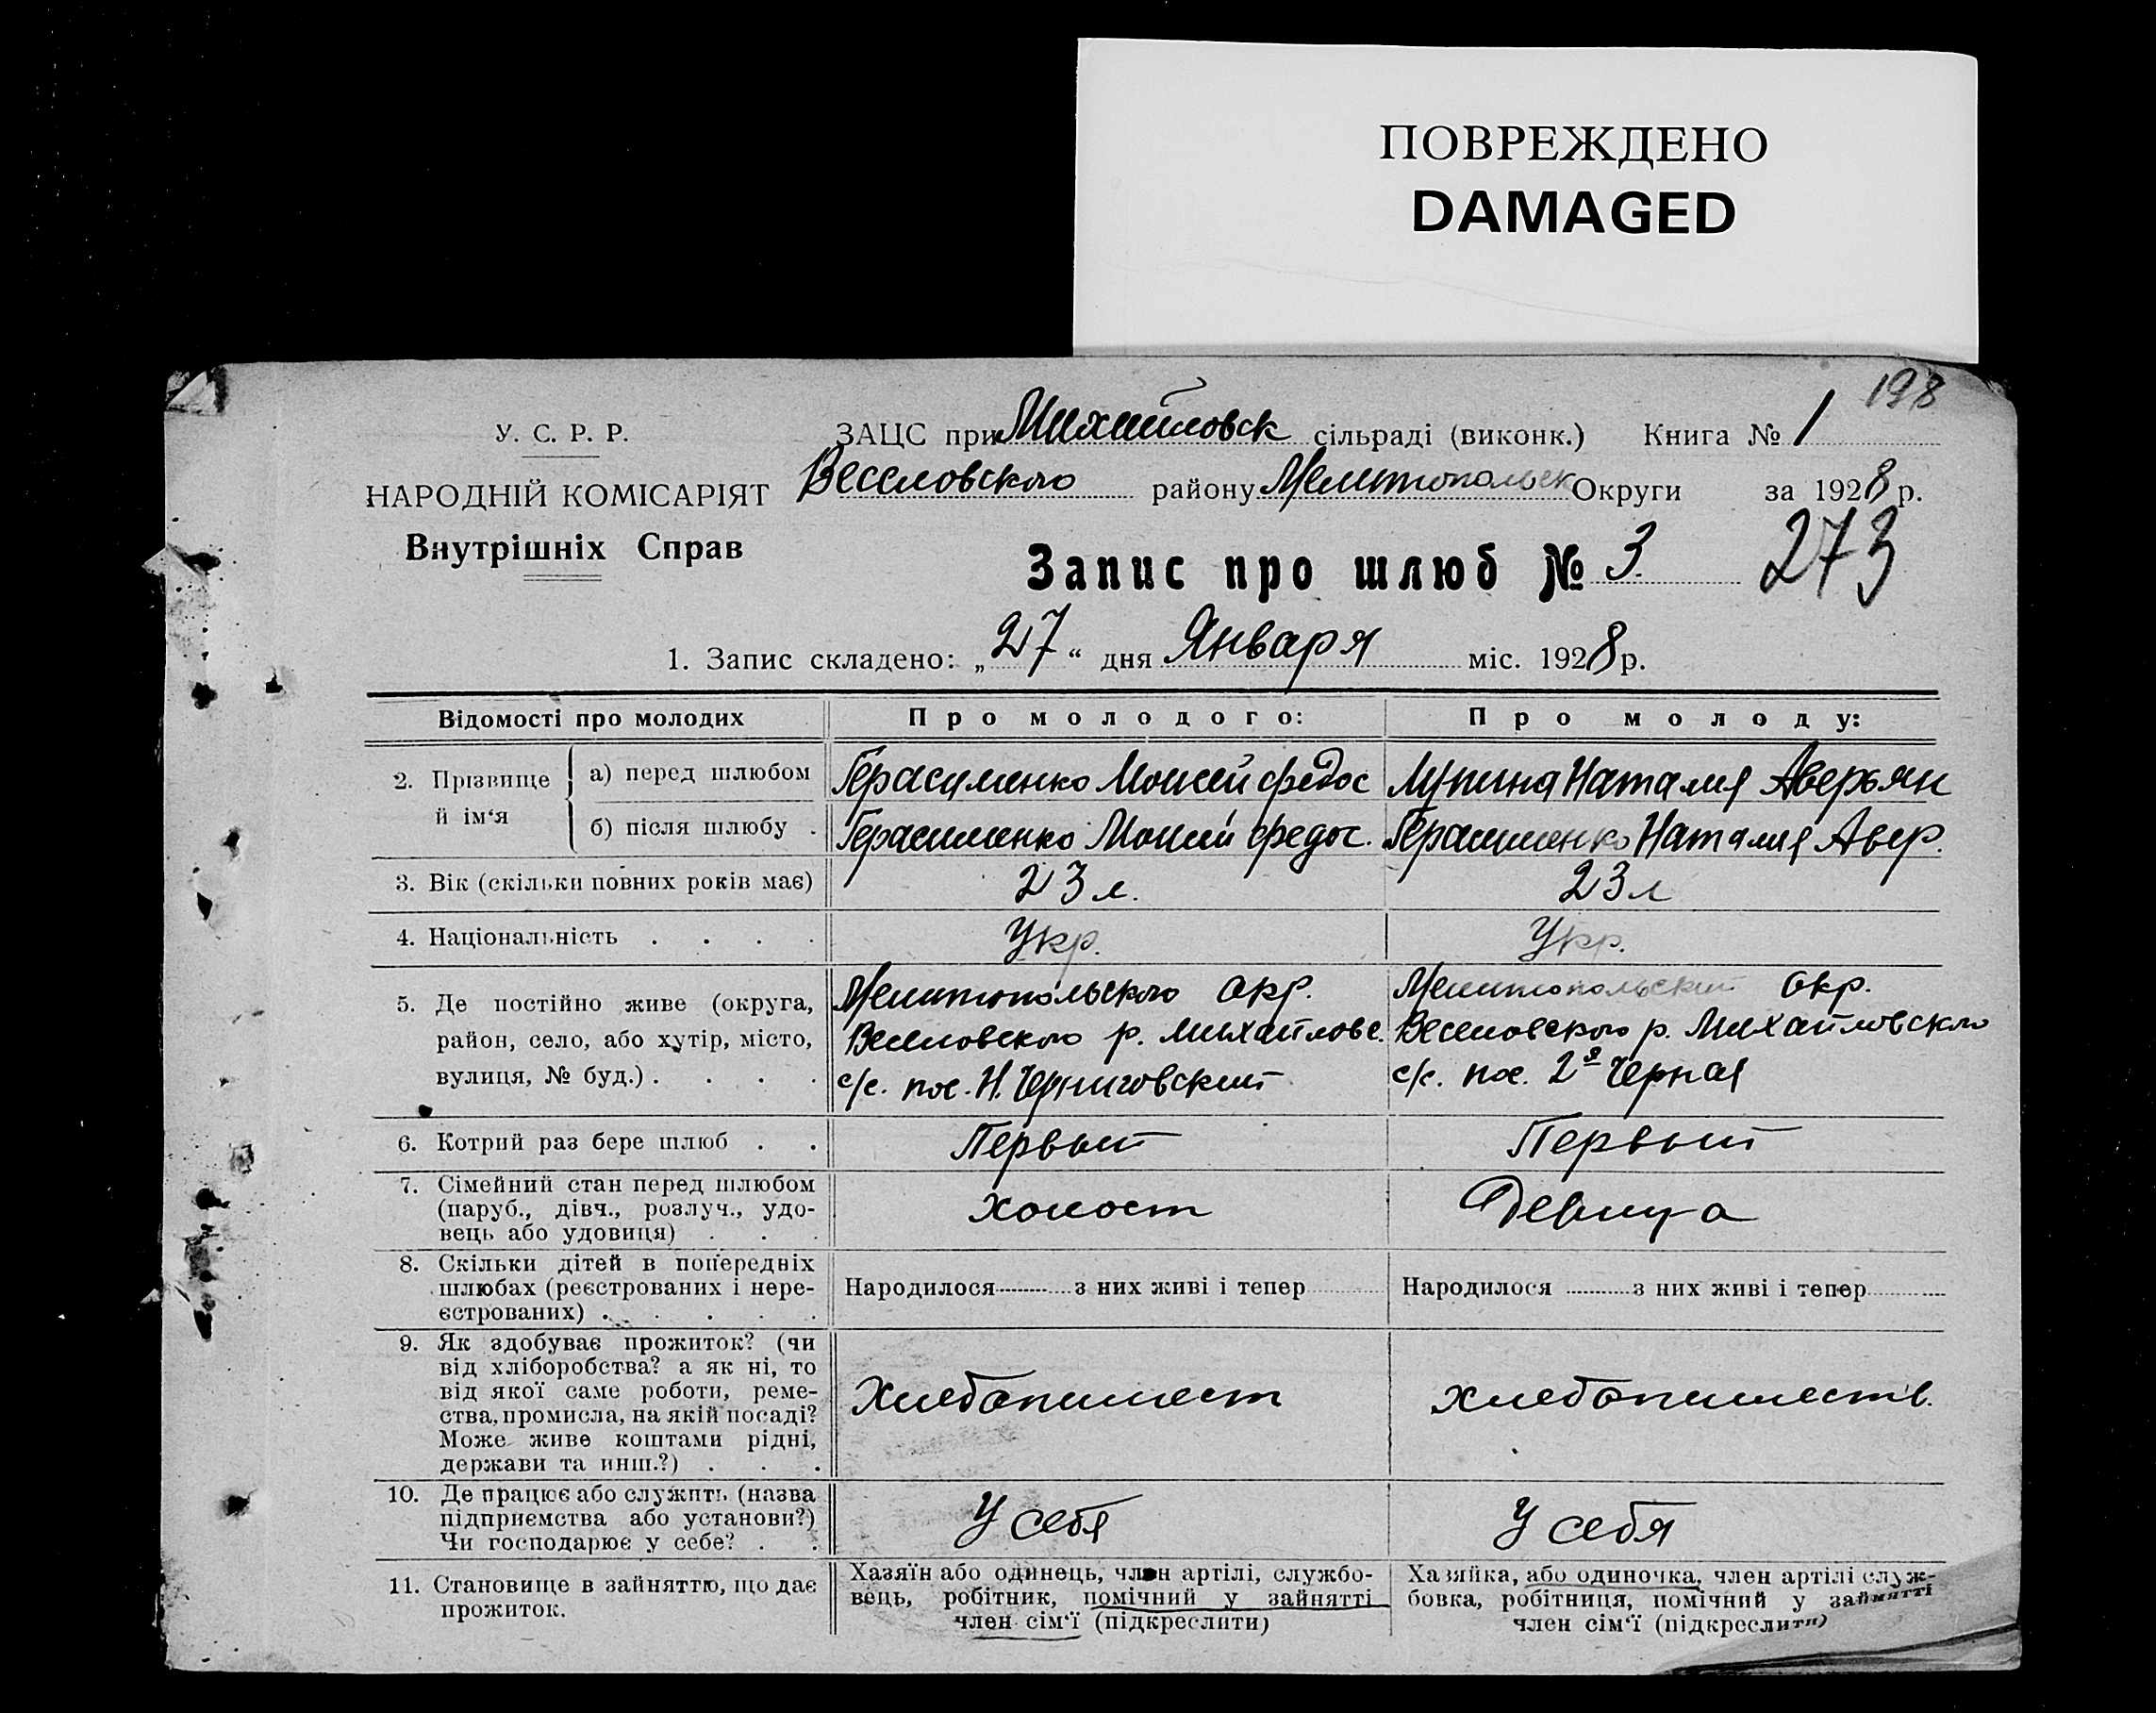 ПОВРЕЖДЕНО
DAMAGED
198
У. С. Р. Р.
ЗАЦС при Михайловск сільраді (виконк.) Книга № 1
НАРОДНІЙ КОМІСАРІЯТ
Веселовского району Мелитопольск Округи за 1928 р.
Внутрішніх Справ
Запис про шлюб № 3. 273
1. Запис складено: „27“ дня Января міс. 1928 р.
Відомості про молодих
Про молодого:
Про молоду:
2. Прізвище й ім‘я
а) перед шлюбом
Герасименко Моисей Федос
Лупина Наталия Аверьян
б) після шлюбу .
Герасименко Моисей Федос.
Герасименко Наталия Авер.
3. Вік (скільки повних років має)
23 л.
23 л
4. Національність . . . .
Укр.
Укр.
5. Де постійно живе (округа,
район, село, або хутір, місто,
вулиця, № буд.) . . . .
Мелитопольского Окр.
Веселовского р. Михайловс.
с/с. пос. Н. Черниговский
Мелитопольский Окр.
Веселовского р. Михайловского
с/с. пос. 2я Черная
6. Котрий раз бере шлюб . .
Первый
Первый
7. Сімейний стан перед шлюбом
(паруб., дівч., розлуч., удо-
вець або удовиця) . . .
холост
Девица
8. Скільки дітей в попередніх
шлюбах (реєстрованих і нере-
єстрованих) . . . . .
Народилося з них живі і тепер
Народилося з них живі і тепер
9. Як здобуває прожиток? (чи
від хліборобства? а як ні, то
від якої саме роботи, реме-
ства, промисла, на якій посаді?
Може живе коштами рідні,
держави та инш.?) . . .
Хлебопашест
хлебопашеств.
10. Де працює або служить (назва
підприємства або установи?)
Чи господарює у себе? . .
У себя
У себя
11. Становище в зайняттю, що дає
прожиток.
Хазяїн або одинець, член артілі, службо-
вець, робітник, помічний у зайнятті
член сім‘ї (підкреслити)
Хазяйка, або одиночка, член артілі служ-
бовка, робітниця, помічний у зайнятті
член сім‘ї (підкреслити)